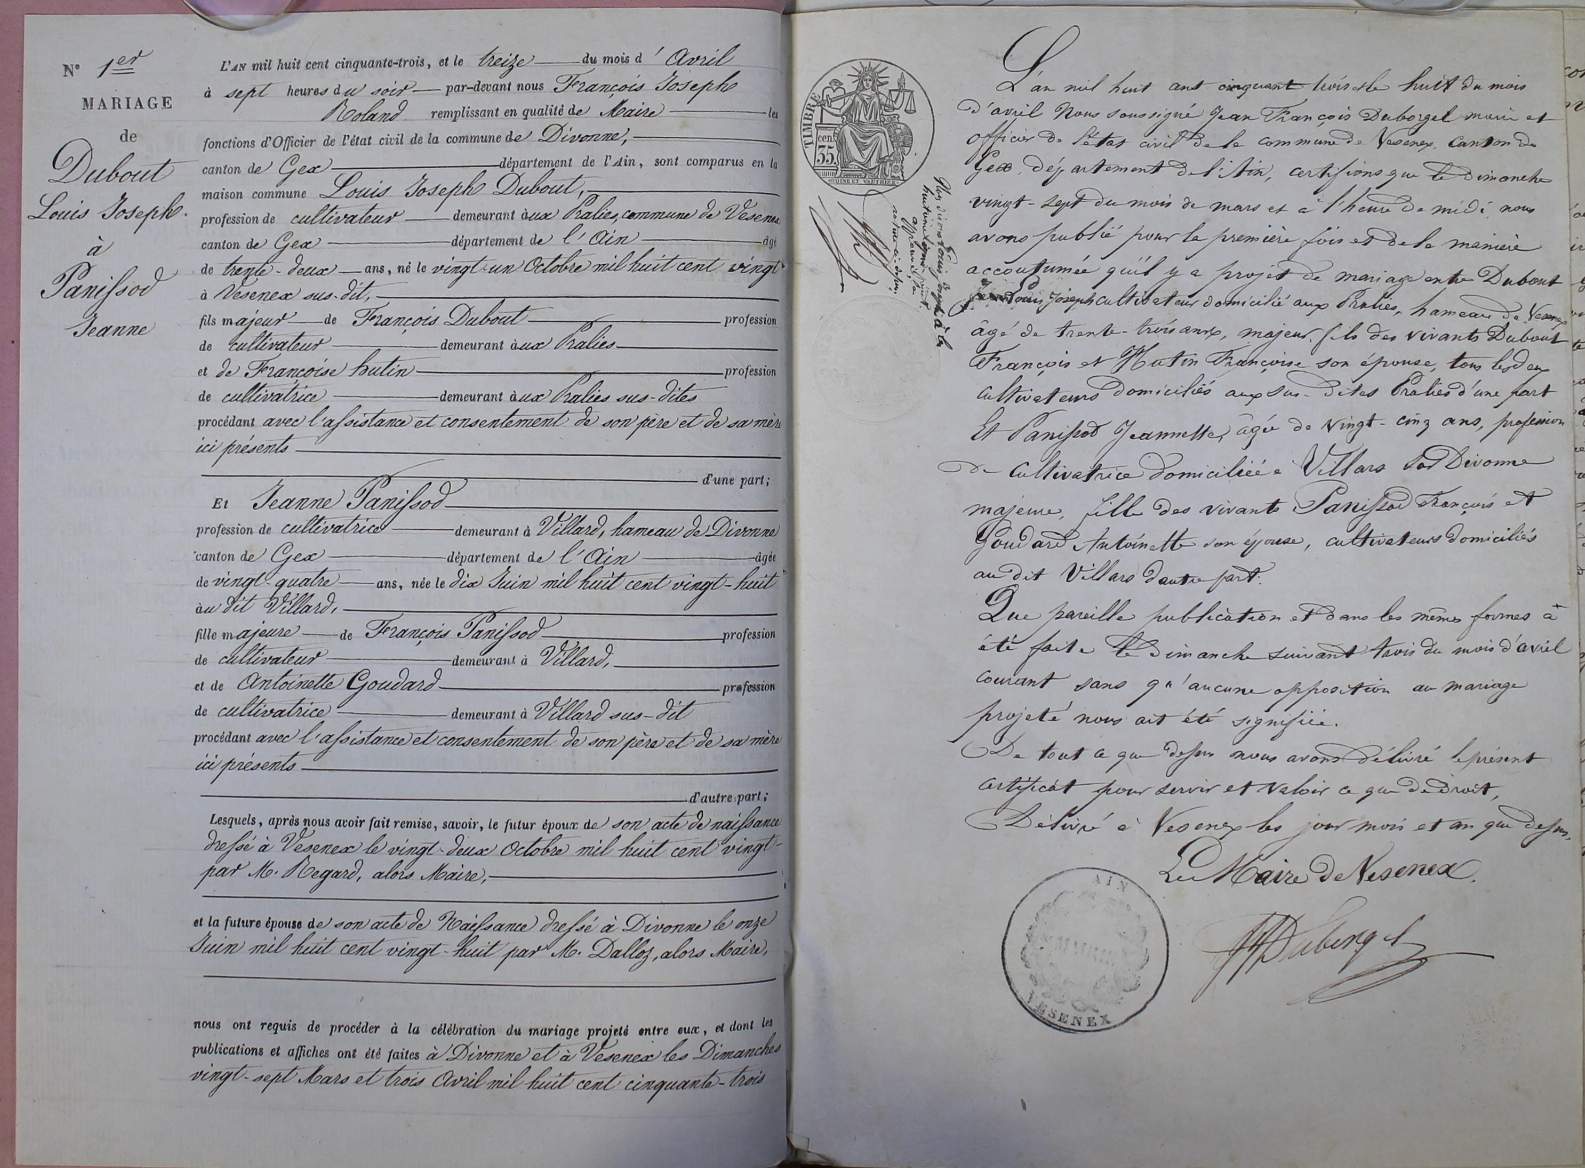 N° 1er
MARIAGE
de
Dubout
Louis Joseph.
à
Panissod
Jeanne
L'AN mil huit cent cinquante-trois, et le treize du mois d'Avril
à sept heures du soir par-devant nous François Joseph
Roland remplissant en qualité de Maire les
fonctions d'Officier de l'état civil de la commune de Divonne,
canton de Gex département de l'Ain, sont comparus en la
maison commune Louis Joseph Dubout,
profession de cultivateur demeurant àux Pralies, commune de Vesenex
canton de Gex département de l'Ain âgé
de trente-deux ans, né le vingt-un Octobre mil huit cent vingt
à Vesenex sus-dit,
fils majeur de François Dubout profession
de cultivateur demeurant àux Pralies
et de Françoise hutin profession
de cultivatrice demeurant àux Pralies sus-dites
procédant avec l'assistance et consentement de son père et de sa mère
ici présents
d'une part;
Et Jeanne Panissod
profession de cultivatrice demeurant à Villard, hameau de Divonne
canton de Gex département de l'Ain âgée
de vingt-quatre ans, née le dix Juin mil huit cent vingt-huit
àu dit Villard,
fille majeure de François Panissod profession
de cultivateur demeurant à Villard,
et de Antoinette Goudard profession
de cultivatrice demeurant à Villard sus-dit
procédant avec l'assistance et consentement de son père et de sa mère
ici présents
d'autre part;
Lesquels, après nous avoir fait remise, savoir, le futur époux de son acte de naissance
dressé à Vesenex le vingt-deux Octobre mil huit cent vingt-
par M. Regard, alors Maire,
et la future épouse de son acte de Naissance dressé à Divonne le onze
Juin mil huit cent vingt-huit par M. Dalloz, alors Maire,
nous ont requis de procéder à la célébration du mariage projeté entre eux, et dont les
publications et affiches ont été faites à Divonne et à Vesenex les Dimanches
vingt-sept Mars et trois Avril mil huit cent cinquante-trois
TIMBRE
35
cen
L'an mil huit cent cinquante trois et le huit du mois
d'avril Nous soussigné Jean François Duborgel maire et
officier de l'état civil de la commune de Vesenex, Canton de
Gex, département de l'Ain, certifions que le Dimanche
vingt-sept du mois de mars et à l'heure de midi, nous
avons publié pour la première fois et de la manière
accoutumée qu'il y a projet de mariage entre Dubout
Louis Joseph cultivateur domicilié aux Pralies, hameau de Vesenex
âgé de trente-trois ans, majeur, fils des vivants Dubout
François et Hutin Françoise son épouse, tous les deux
cultivateurs domiciliés aux sus-dites Pralies d'une part
Et Panissod Jeannette, âgée de vingt-cinq ans, profession
de cultivatrice domiciliée à Villars sur Divonne
majeure, fille des vivants Panissod François et
Goudard Antoinette son épouse, cultivateurs domiciliés
au dit Villars d'autre part.
Que pareille publication et dans les mêmes formes a
été faite le Dimanche suivant trois du mois d'avril
courant sans qu'aucune opposition au mariage
projeté nous ait été signifiée.
De tout ce que dessus nous avons délivré le présent
certificat pour servir et valoir ce que de droit,
Délivré à Vesenex les jour mois et an que dessus,
Le Maire de Vesenex.
AIN
VESENEX
JFDuborgel